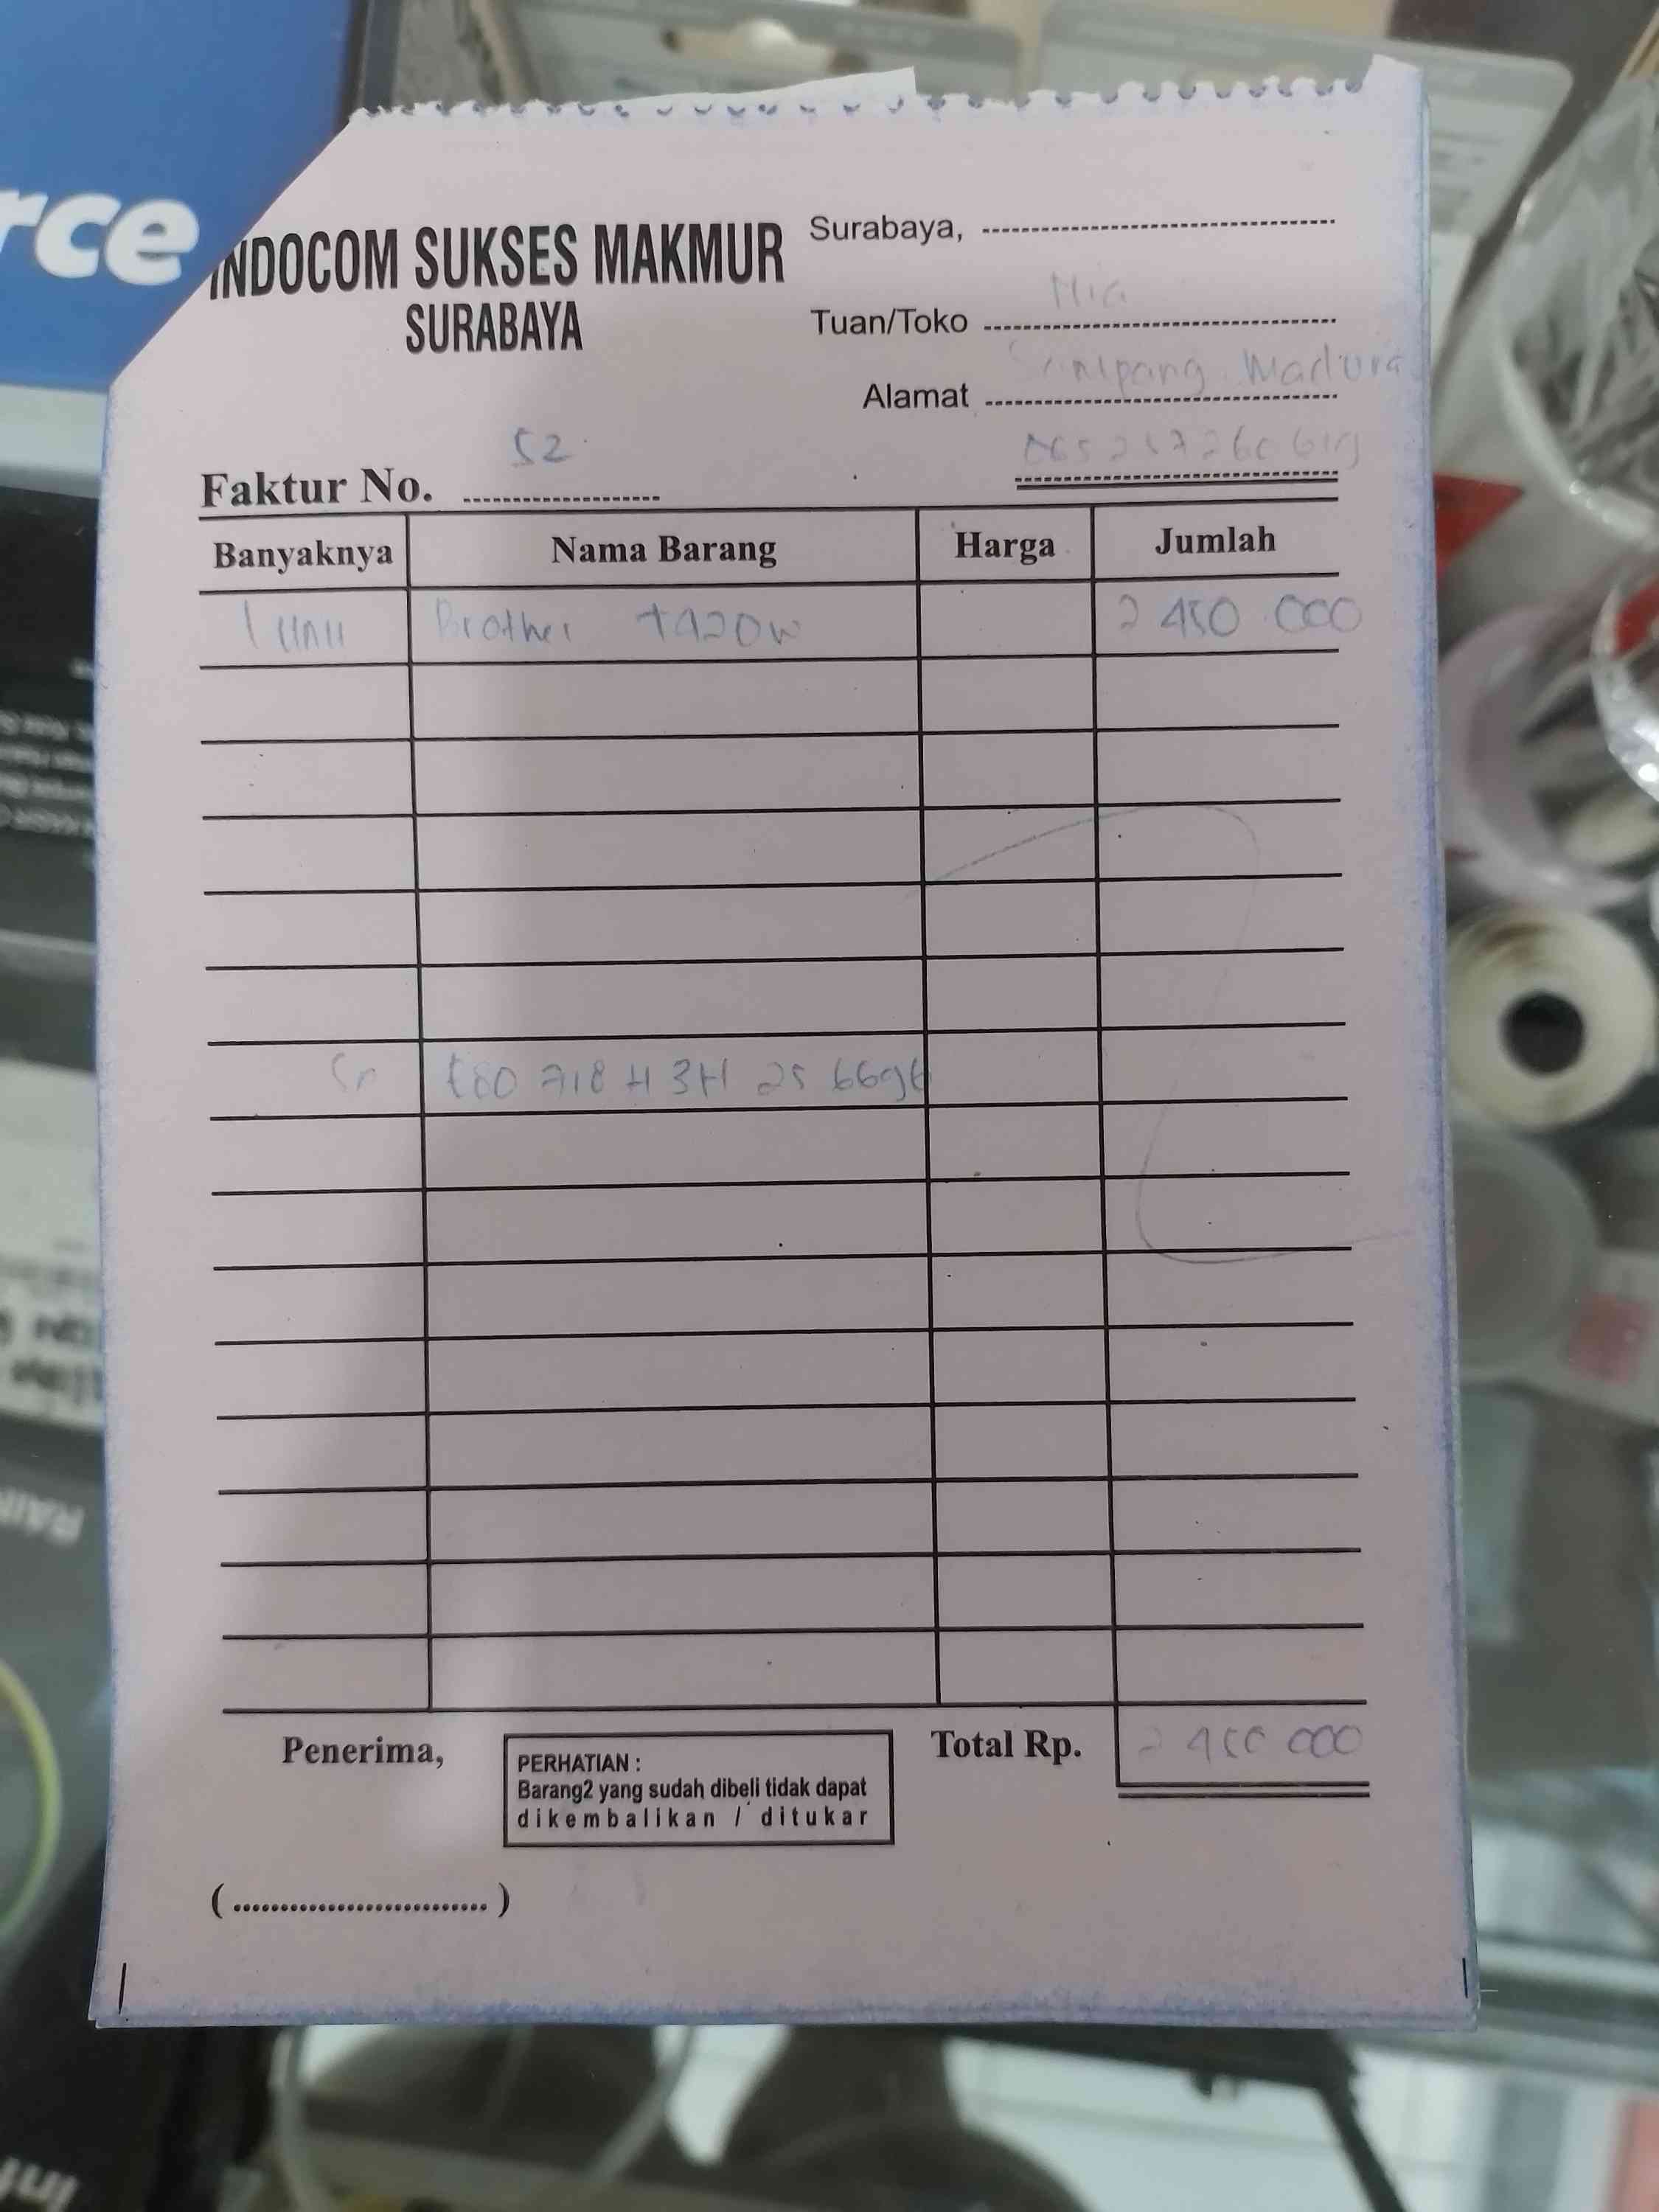 rce
INDOCOM SUKSES MAKMUR
SURABAYA
Surabaya,
Tuan/Toko Mia
Alamat Sampang Madura
Faktur No. 52
Banyaknya Nama Barang Harga Jumlah
1 unit Brother T420W 2 450 000
Sn E80 718 H 3H 25 6696
Penerima,
PERHATIAN :
Barang2 yang sudah dibeli tidak dapat
dikembalikan / ditukar
Total Rp. 2 450 000
(........................... )
RAIN